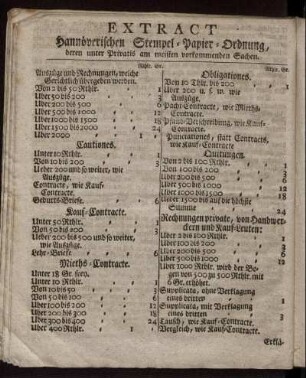 EXTRACT
Hannöverischen Stempel-Papier-Ordnung,
deren unter Privatis am meisten vorkommenden Sachen.
Auszüge und Rechnungen, welche
Gerichtlich übergeben werden.
Von 2 bis 50 Rthlr.
Uber 50 bis 200
Uber 200 bis 500
Uber 500 bis 1000
Uber 1000 bis 1500
Uber 1500 bis 2000 24
Uber 2000
Cautiones.
Unter 10 Rthlr.
Von 10 bis 200
Ueber 200 und so weiter, wie
Auszüge.
Contracte, wie Kauf-
Contracte.
Geburts-Briefe.
Kauf-Contracte.
Unter 50 Rthlr.
Von 50 bis 200
Ueber 200 bis 500 und so weiter,
wie Auszüge.
Lehr-Briefe
Mieths-Contracte.
Unter 18 Gr. frey.
Unter 10 Rthlr.
Von 10 bis 50
Von 50 bis 100
Uber 100 bis 200 12
Uber 200 bis 300 18
Uber 300 bis 400 24
Uber 400 Rthlr. 1
Obligationes.
Von 10 Thlr. bis 200 1
Uber 200 u. s. w. wie
Auszüge.
Pacht-Contracte, wie Mieths-
Contracte.
Pfand-Verschreibung, wie Kauf-
Contracte.
Punctationes, statt Contracts,
wie Kauf-Contracte.
Quitungen.
Von 2 bis 100 Rthlr. 1
Von 100 bis 200
Uber 200 bis 500 3
Uber 500 bis 1000 6
Uber 1000 bis 1500 12
Ueber 1500 bis auf die höchste 18
Summe 24
Rechnungen private, von Handwer-
ckern und Kauf-Leuten:
Uber 2 bis 100 Rthlr. 1
Uber 100 bis 200
Uber 200 bis 500 3
Uber 500 bis 1000
Uber 1000 Rthlr. wird der Bo-
gen von 500 zu 500 Rthlr. mit
6 Gr. erhöhet.
Supplicata, ohne Verfügung
eines dritten 1
Supplicata, mit Verfügung
eines dritten
Tausch, wie Kauf-Contracte 3
Vergleich, wie Kauf-Contracte.
Erklä-